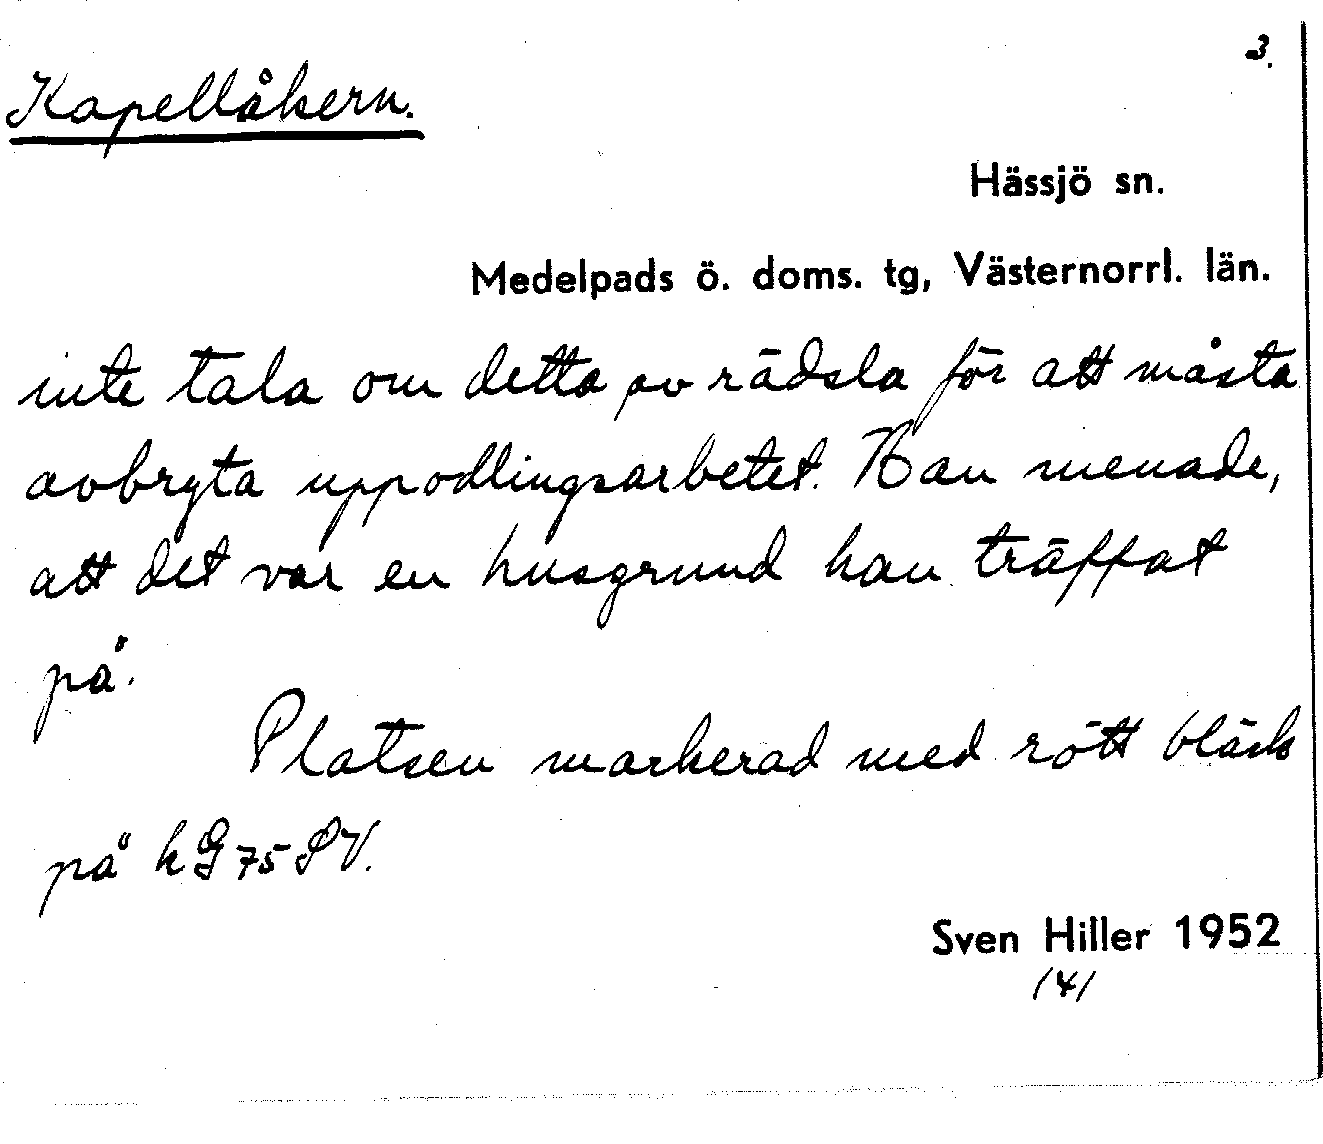 3.
Kapellåkern.
Hässjö sn.
Medelpads ö. doms. tg, Västernorrl. län.
inte tala om detta av rädsla för att måsta
avbryta uppodlingsarbetet. Han menade,
att det var en husgrund han träffat
på.
Platsen markerad med rött bläck
på k G 75 SV.
Sven Hiller 1952
/4/